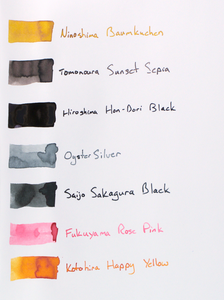 Ninoshima Baumkuchen
Tomonoura Sunset Sepia
Hiroshima Hon-Dori Black
Oyster Silver
Saijo Sakagura Black
Fukuyama Rose Pink
Kotohira Happy Yellow